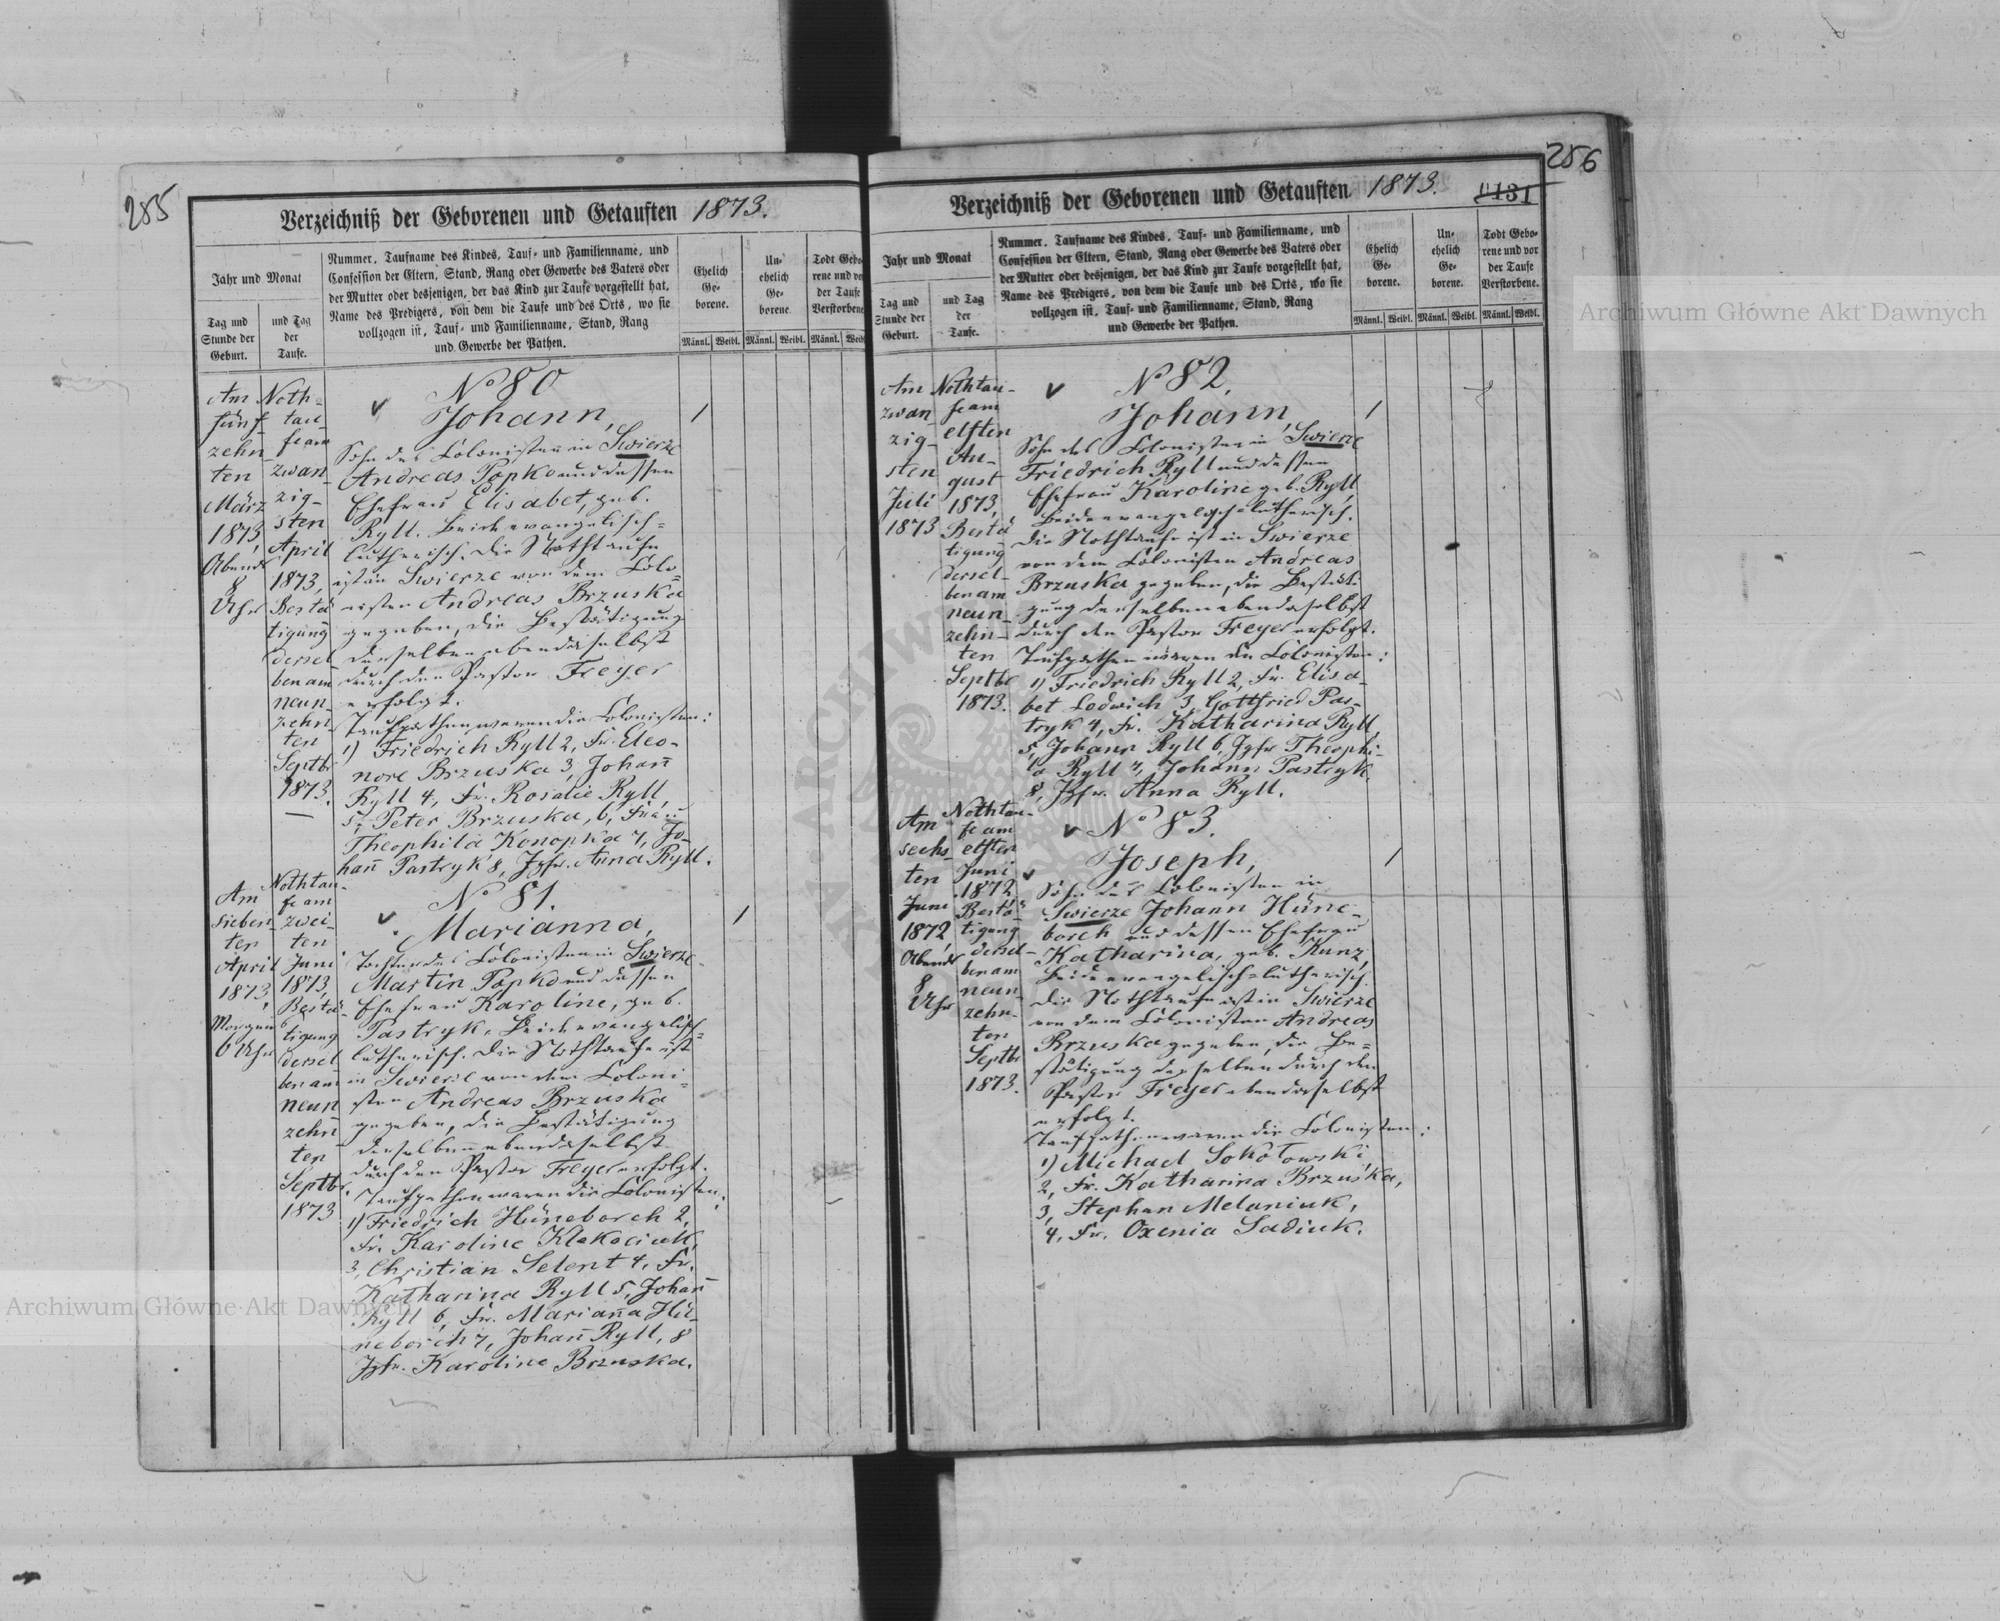 285
Verzeichniß der Geborenen und Getauften 1873.
Jahr und Monat
Tag und
Stunde der
Geburt.
und Tag
der
Taufe.
Nummer, Taufname des Kindes, Tauf- und Familienname, und
Confession der Eltern, Stand, Rang oder Gewerbe des Vaters oder
der Mutter oder desjenigen, der das Kind zur Taufe vorgestellt hat,
Name des Predigers, von dem die Taufe und des Orts, wo sie
vollzogen ist, Tauf- und Familienname, Stand, Rang
und Gewerbe der Pathen.
Ehelich
Ge-
borene.
Un-
ehelich
Ge-
borene.
Todt Gebo-
rene und vor
der Taufe
Verstorbene.
Männl. Weibl. Männl. Weibl. Männl. Weibl.
Am
fünf-
zehn-
ten
März
1873,
Abends
8
Uhr
Noth-
tau-
fe am
zwan-
zig-
sten
April
1873,
Bestä-
tigung
dersel-
ben am
neun-
zehn-
ten
Septbr
1873.
No 80
Johann,
Sohn des Colonisten in Swierze
Andreas Popko und dessen
Ehefrau Elisabet, geb.
Ryll. Beide evangelisch-
lutherisch. Die Nothtaufe
ist in Swierze von dem Colo-
nisten Andreas Brzuska
gegeben, die Bestätigung
derselben ebendaselbst
durch den Pastor Freyer
erfolgt.
Taufpathen waren die Colonisten:
1) Friedrich Ryll 2, Fr. Eleo-
nore Brzuska 3, Johañ
Ryll 4, Fr. Rosalie Ryll,
5, Peter Brzuska, 6, Frau
Theophila Konopka 7, Jo-
hañ Pastryk 8, Jgfr. Anna Ryll.
1
Am
sieben-
ten
April
1873,
Morgens
6 Uhr
Nothtau-
fe am
zwei-
ten
Juni
1873,
Bestä-
tigung
dersel-
ben am
neun-
zehn-
ten
Septbr.
1873
No 81.
Marianna,
Tochter des Colonisten in Swierze
Martin Popko und dessen
Ehefrau Karoline, geb.
Pastryk. Beide evangelisch-
lutherisch. Die Nothtaufe ist
in Swierze von dem Coloni-
sten Andreas Brzuska
gegeben, die Bestätigung
derselben ebendaselbst
durch den Pastor Freyer erfolgt.
Taufpathen waren die Colonisten:
1) Friedrich Hüneborch 2,
Fr. Karoline Klakociuk,
3, Christian Selent 4, Fr.
Katharina Ryll 5, Johañ
Ryll 6, Fr. Mariaña Hü-
neborch 7, Johañ Ryll, 8
Jgfr. Karoline Brzuska.
1
256
Verzeichniß der Geborenen und Getauften 1873.
131
Jahr und Monat
Tag und
Stunde der
Geburt.
und Tag
der
Taufe.
Nummer, Taufname des Kindes, Tauf- und Familienname, und
Confession der Eltern, Stand, Rang oder Gewerbe des Vaters oder
der Mutter oder desjenigen, der das Kind zur Taufe vorgestellt hat,
Name des Predigers, von dem die Taufe und des Orts, wo sie
vollzogen ist, Tauf- und Familienname, Stand, Rang
und Gewerbe der Pathen.
Ehelich
Ge-
borene.
Un-
ehelich
Ge-
borene.
Todt Gebo-
rene und vor
der Taufe
Verstorbene.
Männl. Weibl. Männl. Weibl. Männl. Weibl.
Am
zwan
zig-
sten
Juli
1873
Nothtau-
fe am
elften
Au-
gust
1873,
Bestä
tigung
dersel-
ben am
neun-
zehn-
ten
Septbr
1873.
No 82,
Johann,
Sohn des Colonisten in Swierze
Friedrich Ryll und dessen
Ehefrau Karoline geb. Ryll,
Beide evangelisch-lutherisch.
Die Nothtaufe ist in Swierze
von dem Colonisten Andreas
Brzuska gegeben, die Bestäti-
gung derselben ebendaselbst
durch den Pastor Freyer erfolgt.
Taufpathen waren die Colonisten:
1) Friedrich Ryll 2, Fr. Elisa-
bet Lodwich 3, Gottfried Pas-
tryk 4, Fr. Katharina Ryll,
5, Johann Ryll 6, Jgfr Theophi-
la Ryll 7, Johann Pastryk
8, Jgfr. Anna Ryll.
1
Am
sechs-
ten
Juni
1872,
Abends
8
Uhr
Nothtau-
fe am
elften
Juni
1872
Bestä-
tigung
dersel-
ben am
neun-
zehn-
ten
Septbr
1873.
No 83.
Joseph,
Sohn des Colonisten in
Swierze Johann Hüne-
borch und dessen Ehefrau
Katharina, geb. Kunz,
Beide evangelisch-lutherisch.
Die Nothtaufe ist in Swierze
von dem Colonisten Andreas
Brzuska gegeben, die Be-
stätigung derselben durch den
Pastor Freyer ebendaselbst
erfolgt.
Taufpathen waren die Colonisten:
1) Michael Sokołowski,
2, Fr. Katharina Brzuska,
3, Stephan Melaniuk,
4, Fr. Oxenia Sadiuk.
1
Archiwum Główne Akt Dawnych
Archiwum Główne Akt Dawnych